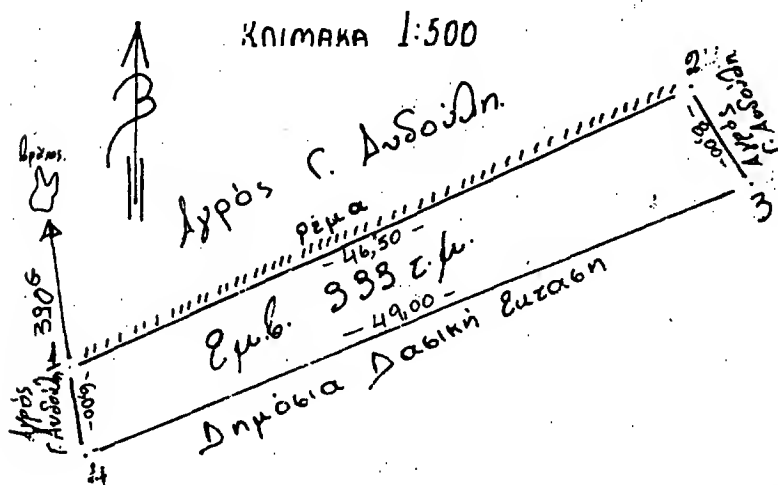 ΚΛΙΜΑΚΑ 1:500
Β
Βράχος.
390G
Αγρός Γ. Ανδούλη.
ρέμα
-46,50-
Εμβ. 333 τ.μ.
-49,00-
Δημόσια Δασική Εκταση
-6,00-
Αγρός
Γ. Ανδούλη
1
2
-8,00-
Αγρός
Γ. Ανδούλη
3
4